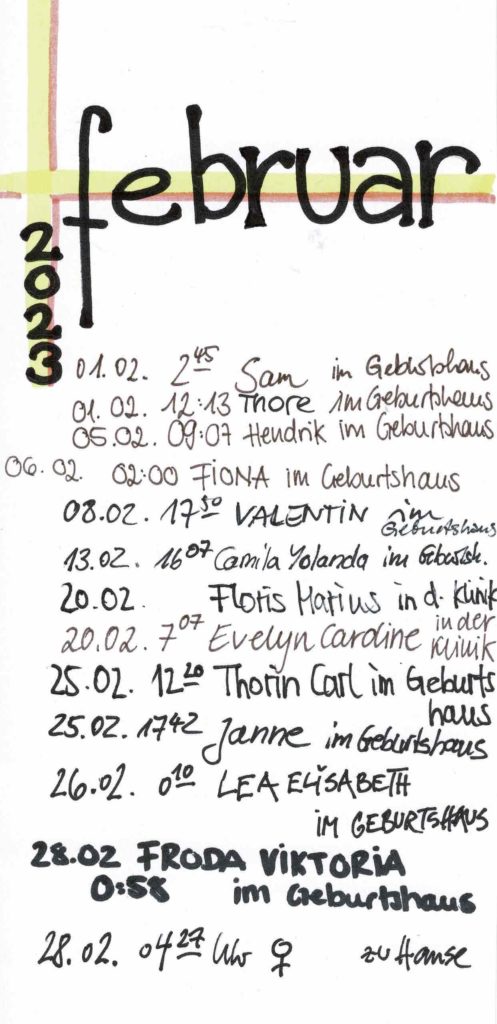 februar
2023
01.02. 2 45 Sam im Geburtshaus
01.02. 12:13 Thore im Geburtshaus
05.02. 09:07 Hendrik im Geburtshaus
06.02. 02:00 FiONA im Geburtshaus
08.02. 17 50 VALENTIN im
Geburtshaus
13.02. 16 07 Camila Yolanda im Geburtsh.
20.02. Floris Marius in d. Klinik
20.02. 7 07 Evelyn Caroline in der
Klinik
25.02. 12 20 Thorin Carl im Geburts
haus
25.02. 17 42 Janne im Geburtshaus
26.02. 0 10 LEA ELiSABETH
im GEBURTSHAUS
28.02 FRODA ViKTORiA
0:58 im Geburtshaus
28.02. 04 27 Uhr ♀ zu Hause